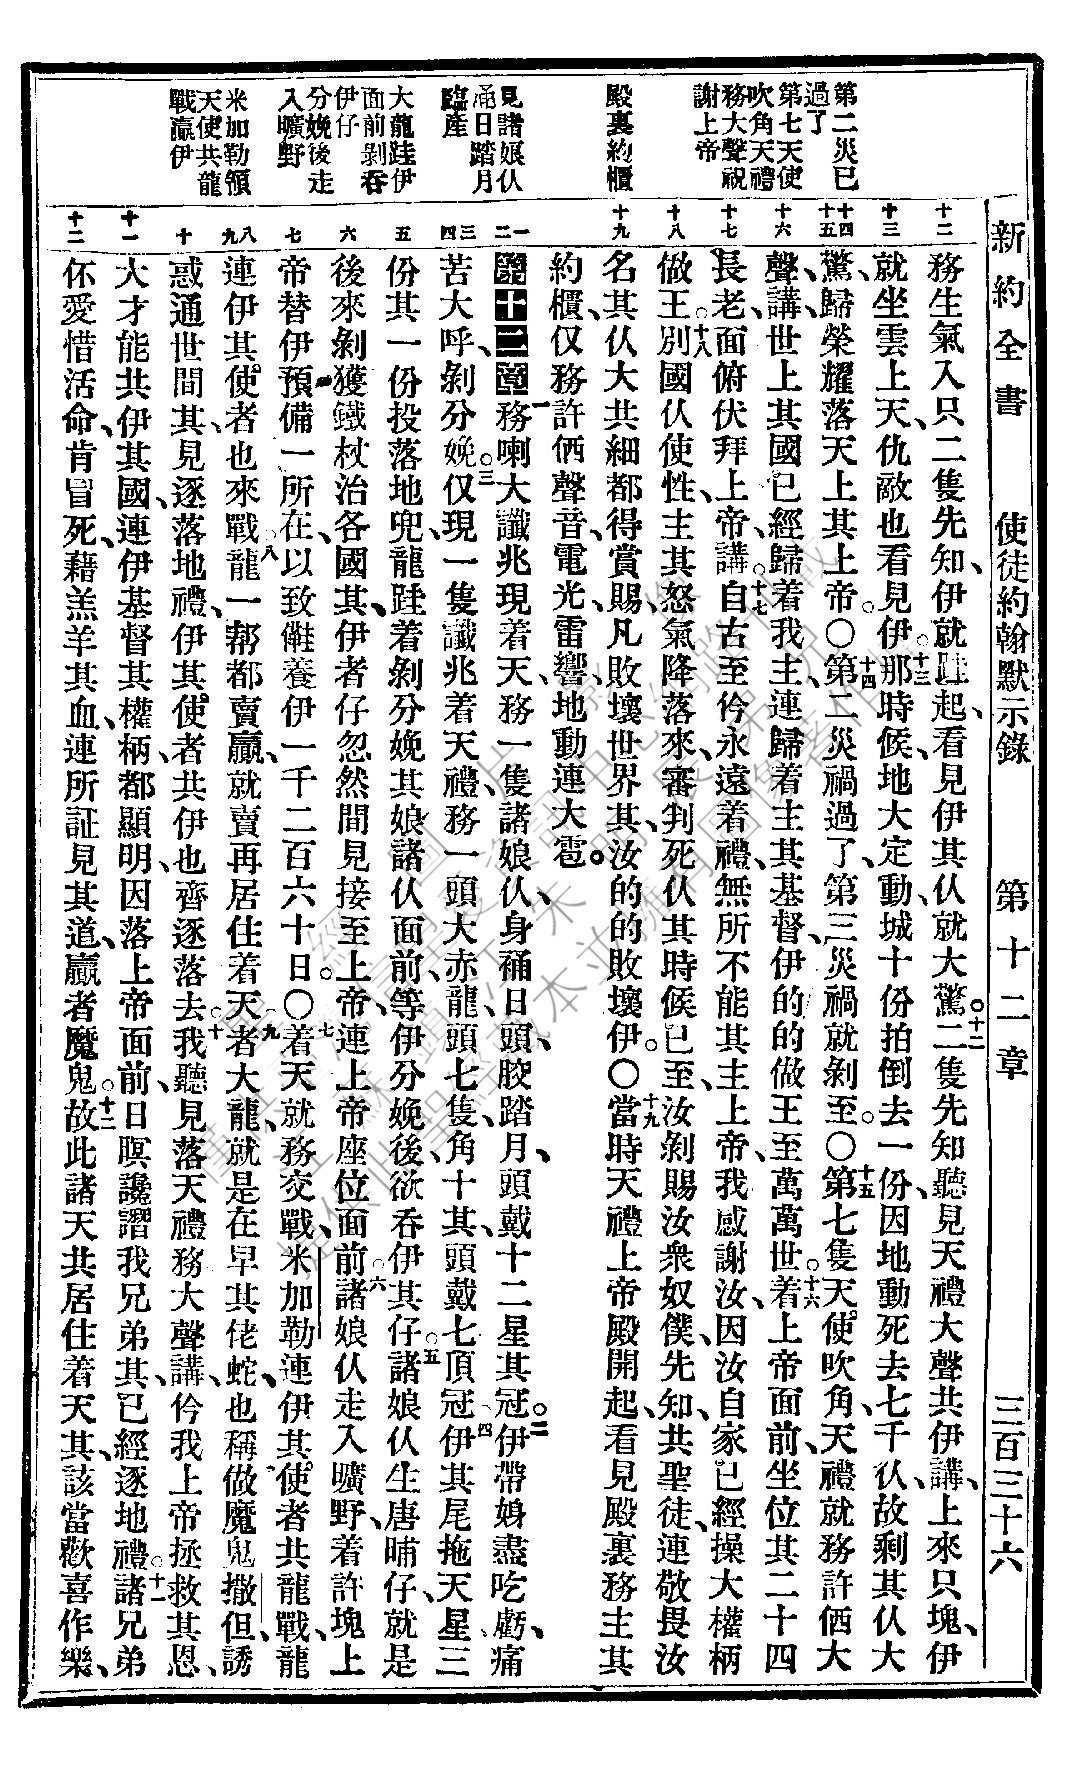 新約全書　使徒約翰默示錄　第十二章　三百三十六
第二災已
過了
第七天使
吹角天禮
務大聲祝
謝上帝
殿裏約櫃
見諸娘仈
日踏月
臨產
大龍跬伊
面前剝吞
伊仔
分娩後走
入曠野
米加勒領
天使共龍
戰贏伊
十二
十三
十四
十五
十六
十七
十八
十九
一
二
三
四
五
六
七
八
九
十
十一
十二
務生氣入只二隻先知、伊就跬起、看見伊其仈就大驚。十二二隻先知聽見天禮大聲共伊講、上來只塊、伊
就坐雲上天、仇敵也看見伊。十三那時候、地大定動、城十份拍倒去一份、因地動死去七千仈、故剩其仈大
驚、歸榮耀落天上其上帝。〇十四第二災禍過了、第三災禍就剝至。〇十五第七隻天使吹角、天禮就務許儕大
聲講、世上其國已經歸着我主、連歸着主其基督、伊的的做王至萬萬世。十六着上帝面前、坐位其二十四
長老、面俯伏拜上帝講。十七自古至仱永遠着禮、無所不能其主上帝、我感謝汝、因汝自家已經操大權柄
做王。十八別國仈使性、主其怒氣降落來、審判死仈其時候已至、汝剝賜汝衆奴僕、先知、共聖徒、連敬畏汝
名其仈、大共細都得賞賜、凡敗壞世界其、汝的的敗壞伊。〇十九當時天禮上帝殿開起、看見殿裏務主其
約櫃、仅務許儕聲音、電光、雷響、地動、連大雹。
第十二章 一務喇大讖兆現着天、務一隻諸娘仈、身日頭、骹踏月、頭戴十二星其冠。二伊帶娠盡吃虧痛
苦大呼、剝分娩。三仅現一隻讖兆着天禮、務一頭大赤龍、頭七隻、角十其、頭戴七頂冠、四伊其尾拖天星三
份其一份投落地兜、龍跬着剝分娩其娘諸仈面前、等伊分娩後、欲吞伊其仔。五諸娘仈生唐晡仔、就是
後來剝獲鐵杖治各國其、伊者仔忽然間見接至上帝、連上帝座位面前、六諸娘仈走入曠野、着許塊上
帝替伊預備一所在、以致餵養伊一千二百六十日。〇七着天就務交戰、米加勒連伊其使者共龍戰、龍
連伊其使者也來戰、八龍一帮都賣贏、就賣再居住着天。九者大龍、就是在早其佬蛇、也稱做魔鬼、撒但、誘
惑通世間其、見逐落地禮、伊其使者共伊也齊逐落去。十我聽見落天禮務大聲講、仱我上帝拯救其恩、
大才能、共伊其國、連伊基督其權柄、都顯明、因落上帝面前、日暝讒譖我兄弟其、已經逐地禮。十一諸兄弟
伓愛惜活命、肯冒死、藉羔羊其血、連所証見其道、贏者魔鬼。十二故此諸天共居住着天其、該當歡喜作樂、